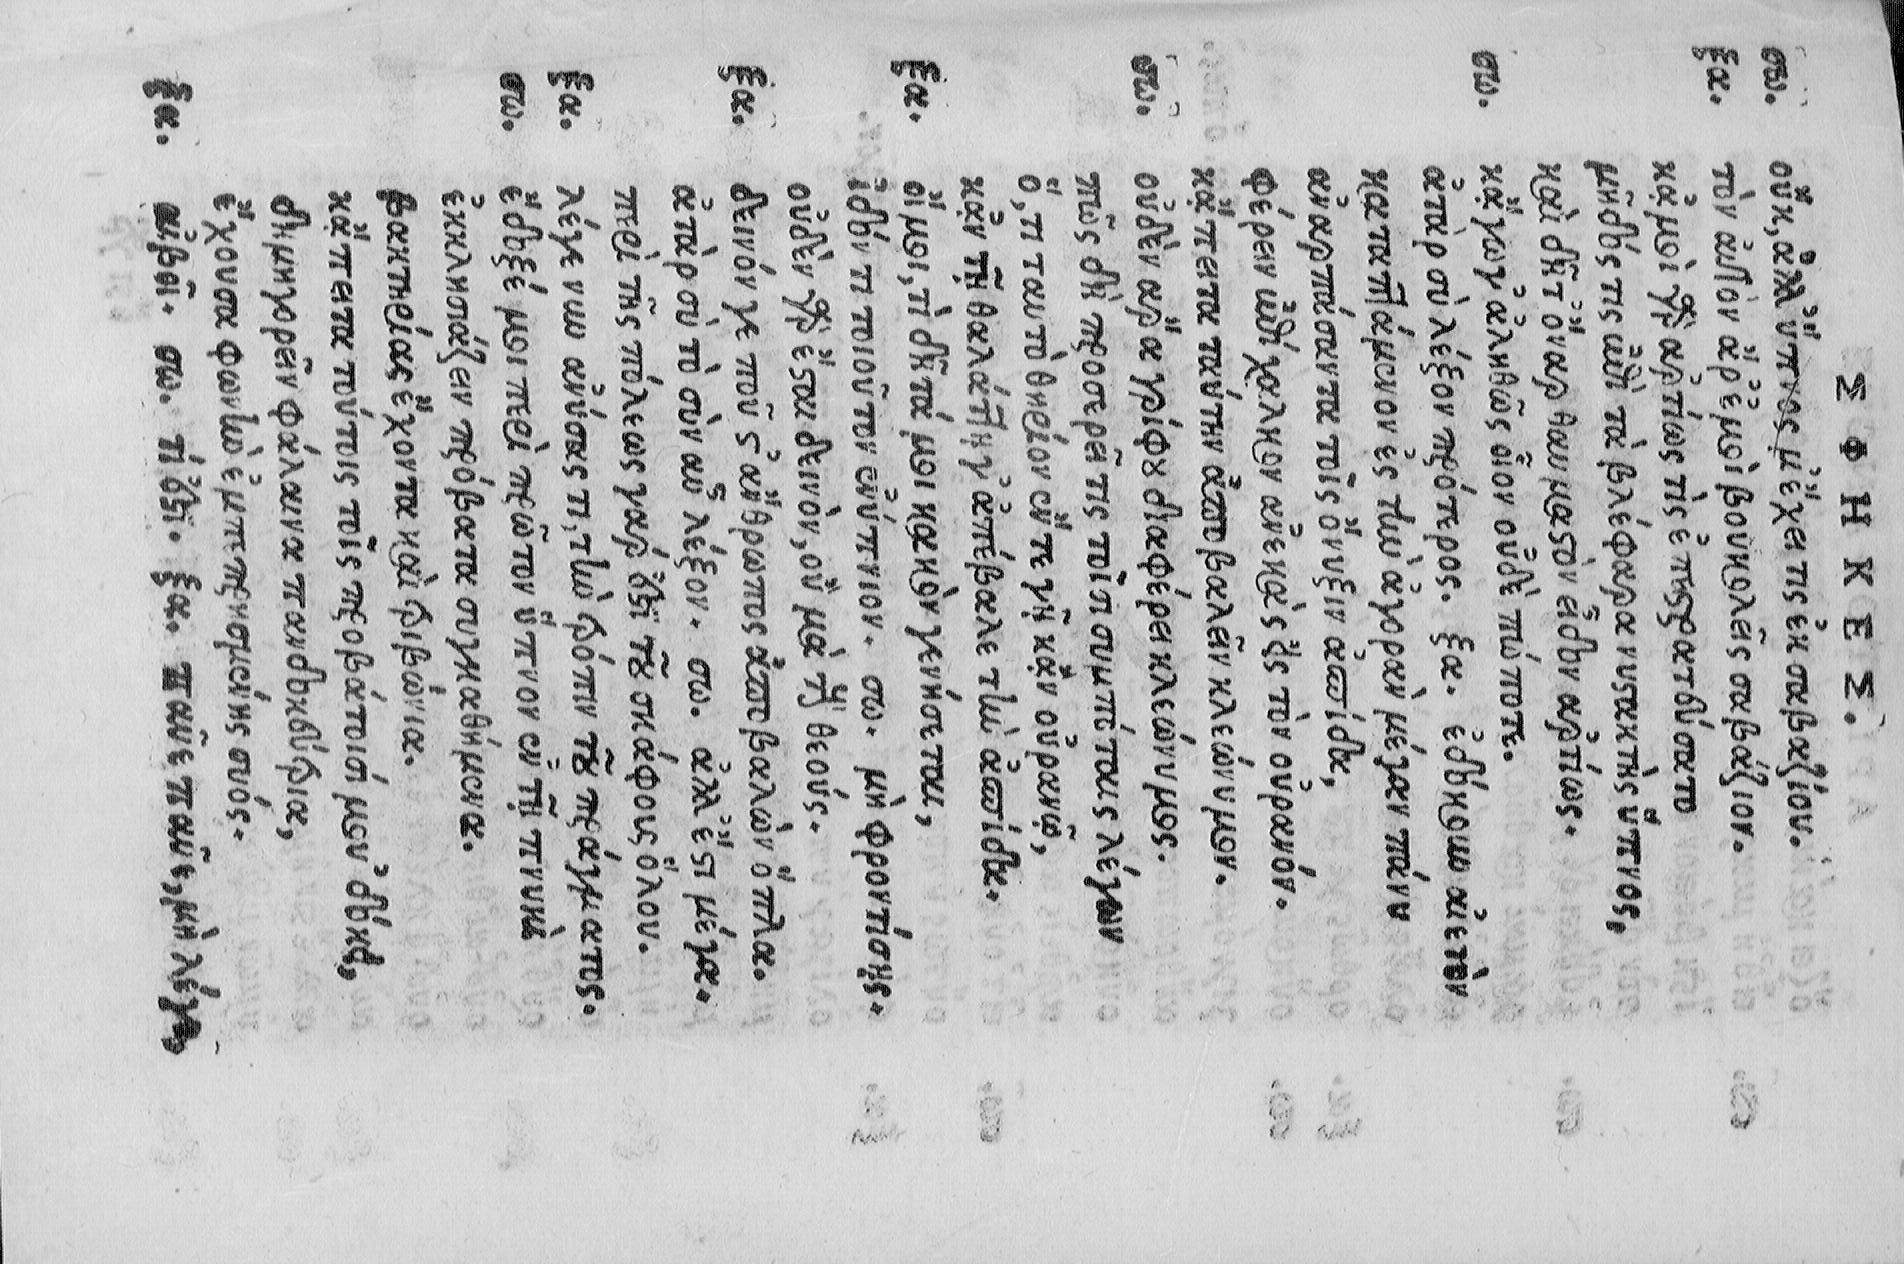 ΣΦΗΚΕΣ.
σω. οὔκ, ἀλλ' ὕπνος μ' ἔχει τις ἐκ σαβαζίου.
ξα. τὸν αὐτὸν ἄρ' ἐμοὶ βουκολεῖς σαβάζιον.
κἀμοὶ γὰρ ἀρτίως τὶς ἐπεστρατεύσατο
μῆδός τις ἐπὶ τὰ βλέφαρα νυστακτὴς ὕπνος,
καὶ δῆτ' ὄναρ θαυμαστὸν εἶδον ἀρτίως.
σω. κἄγωγ' ἀληθῶς οἷον οὐδὲ πώποτε.
ἀτὰρ σὺ λέξον πρότερος. ξα. ἐδόκουν ἀετὸν
καταπτάμενον ἐς τὴν ἀγορὰν μέγαν πάνυ
ἀναρπάσαντα τοῖς ὄνυξιν ἀσπίδα,
φέρειν ἐπίχαλκον ἀνεκὰς ἐς τὸν οὐρανόν.
κἄπειτα ταύτην ἀποβαλεῖν κλεώνυμον.
σω. οὐδὲν ἄρα γρίφου διαφέρει κλεώνυμος.
πῶς δὴ προσερεῖ τις τοῖσι συμπόταις λέγων
ὅ,τι ταυτὸ θηρίον ἐν τε γῇ κἂν οὐρανῷ,
κἂν τῇ θαλάττῃ γ' ἀπέβαλε τὴν ἀσπίδα.
ξα. οἴμοι, τί δῆτά μοι κακὸν γενήσεται,
ἰδόντι τοιοῦτον ἐνύπνιον. σω. μὴ φροντίσῃς.
οὐδὲν γὰρ ἔσται δεινὸν, οὐ μὰ τοὺς θεούς.
ξα. δεινόν γε ποῦ στ' ἄνθρωπος ἀποβαλὼν ὅπλα.
ἀτὰρ σὺ τὸ σὸν αὖ λέξον. σω. ἀλλ' ἔστι μέγα.
περὶ τῆς πόλεως γάρ ἐστι τοῦ σκάφους ὅλου.
ξα. λέγε νυν ἀνύσας τι, τὴν τρόπιν τοῦ πράγματος.
σω. ἔδοξέ μοι περὶ πρῶτον ὕπνον ἐν τῇ πυκνὶ
ἐκκλησιάζειν πρόβατα συγκαθήμενα.
βακτηρίας ἔχοντα καὶ τριβώνια.
κἄπειτα τούτοις τοῖς προβάτοισί μου δόκει,
δημηγορεῖν φάλαινα πανδοκεύτρια,
ἔχουσα φωνὴν ἐμπεπρημένης συός.
ξα. αἰβοῖ. σω. τί ἐστι. ξα. παῦε παῦε, μὴ λέγε,